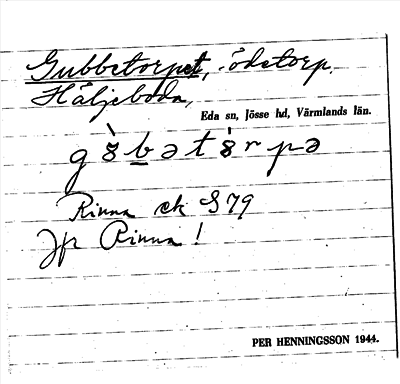 Gubbetorpet, ödetorp.
Häljeboda,
Eda sn, Jösse hd, Värmlands län.
g ò̈ b ə t ò̈ r p ə
Rinna ek S 79
Jfr Rinna !
PER HENNINGSSON 1944.